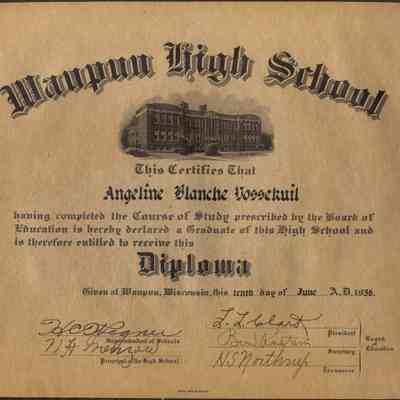 Waupun High School
This Certifies That
Angeline Blanche Vossekuil
having completed the Course of Study prescribed by the Board of
Education is hereby declared a Graduate of this High School and
is therefore entitled to receive this
Diploma
Given at Waupun, Wisconsin, this tenth day of June A.D. 1936.
President
Superintendent of Schools
Secretary
Board of Education
N S Northrup
Principal of the High School
Treasurer